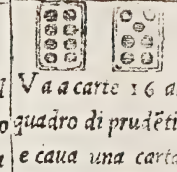 Va a carte 16 a
quadro di prudēti
e caua una carta